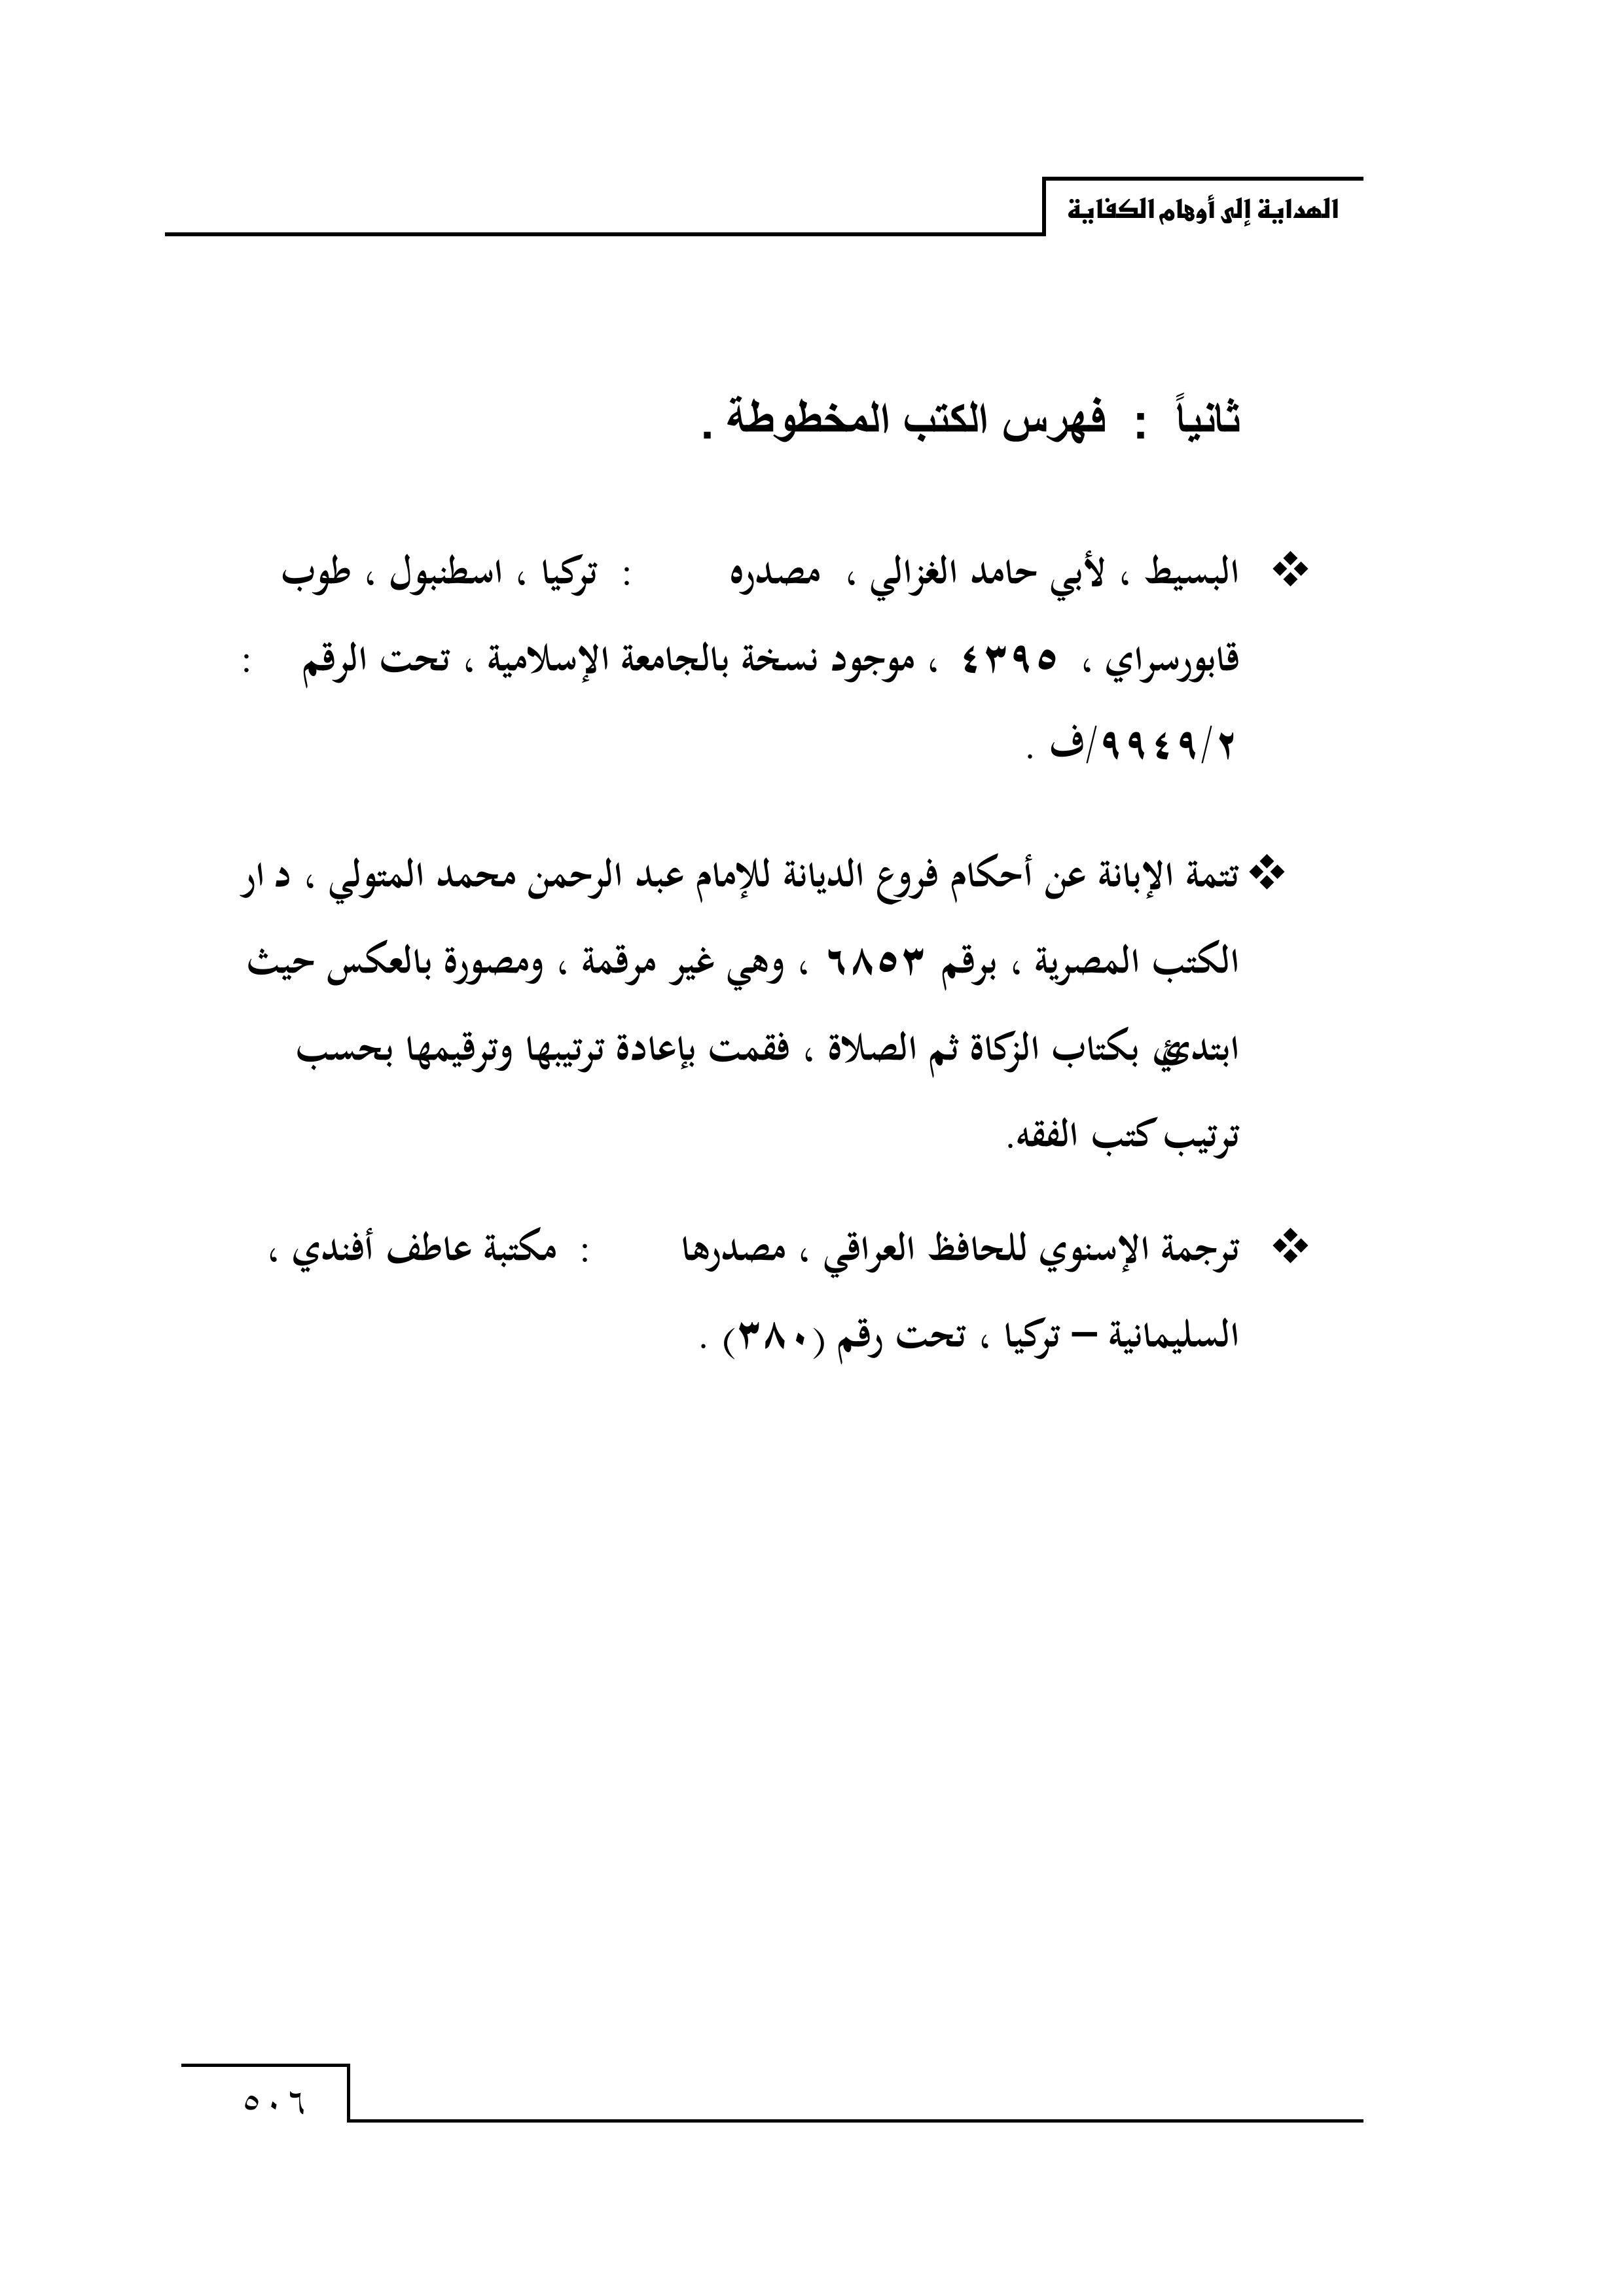 الهداية إلى أوهام الكفاية
ثانياً : فهرس الكتب المخطوطة .
❖ البسيط ، لأبي حامد الغزالي ، مصدره : تركيا ، اسطنبول ، طوب
قابورسراي ، ٤٣٩٥ ، موجود نسخة بالجامعة الإسلامية ، تحت الرقم :
٢/٩٩٤٩/ف .
❖ تتمة الإبانة عن أحكام فروع الديانة للإمام عبد الرحمن محمد المتولي ، د ار
الكتب المصرية ، برقم ٦٨٥٣ ، وهي غير مرقمة ، ومصورة بالعكس حيث
ابتدئ بكتاب الزكاة ثم الصلاة ، فقمت بإعادة ترتيبها وترقيمها بحسب
ترتيب كتب الفقه.
❖ ترجمة الإسنوي للحافظ العراقي ، مصدرها : مكتبة عاطف أفندي ،
السليمانية – تركيا ، تحت رقم (٣٨٠) .
٥٠٦